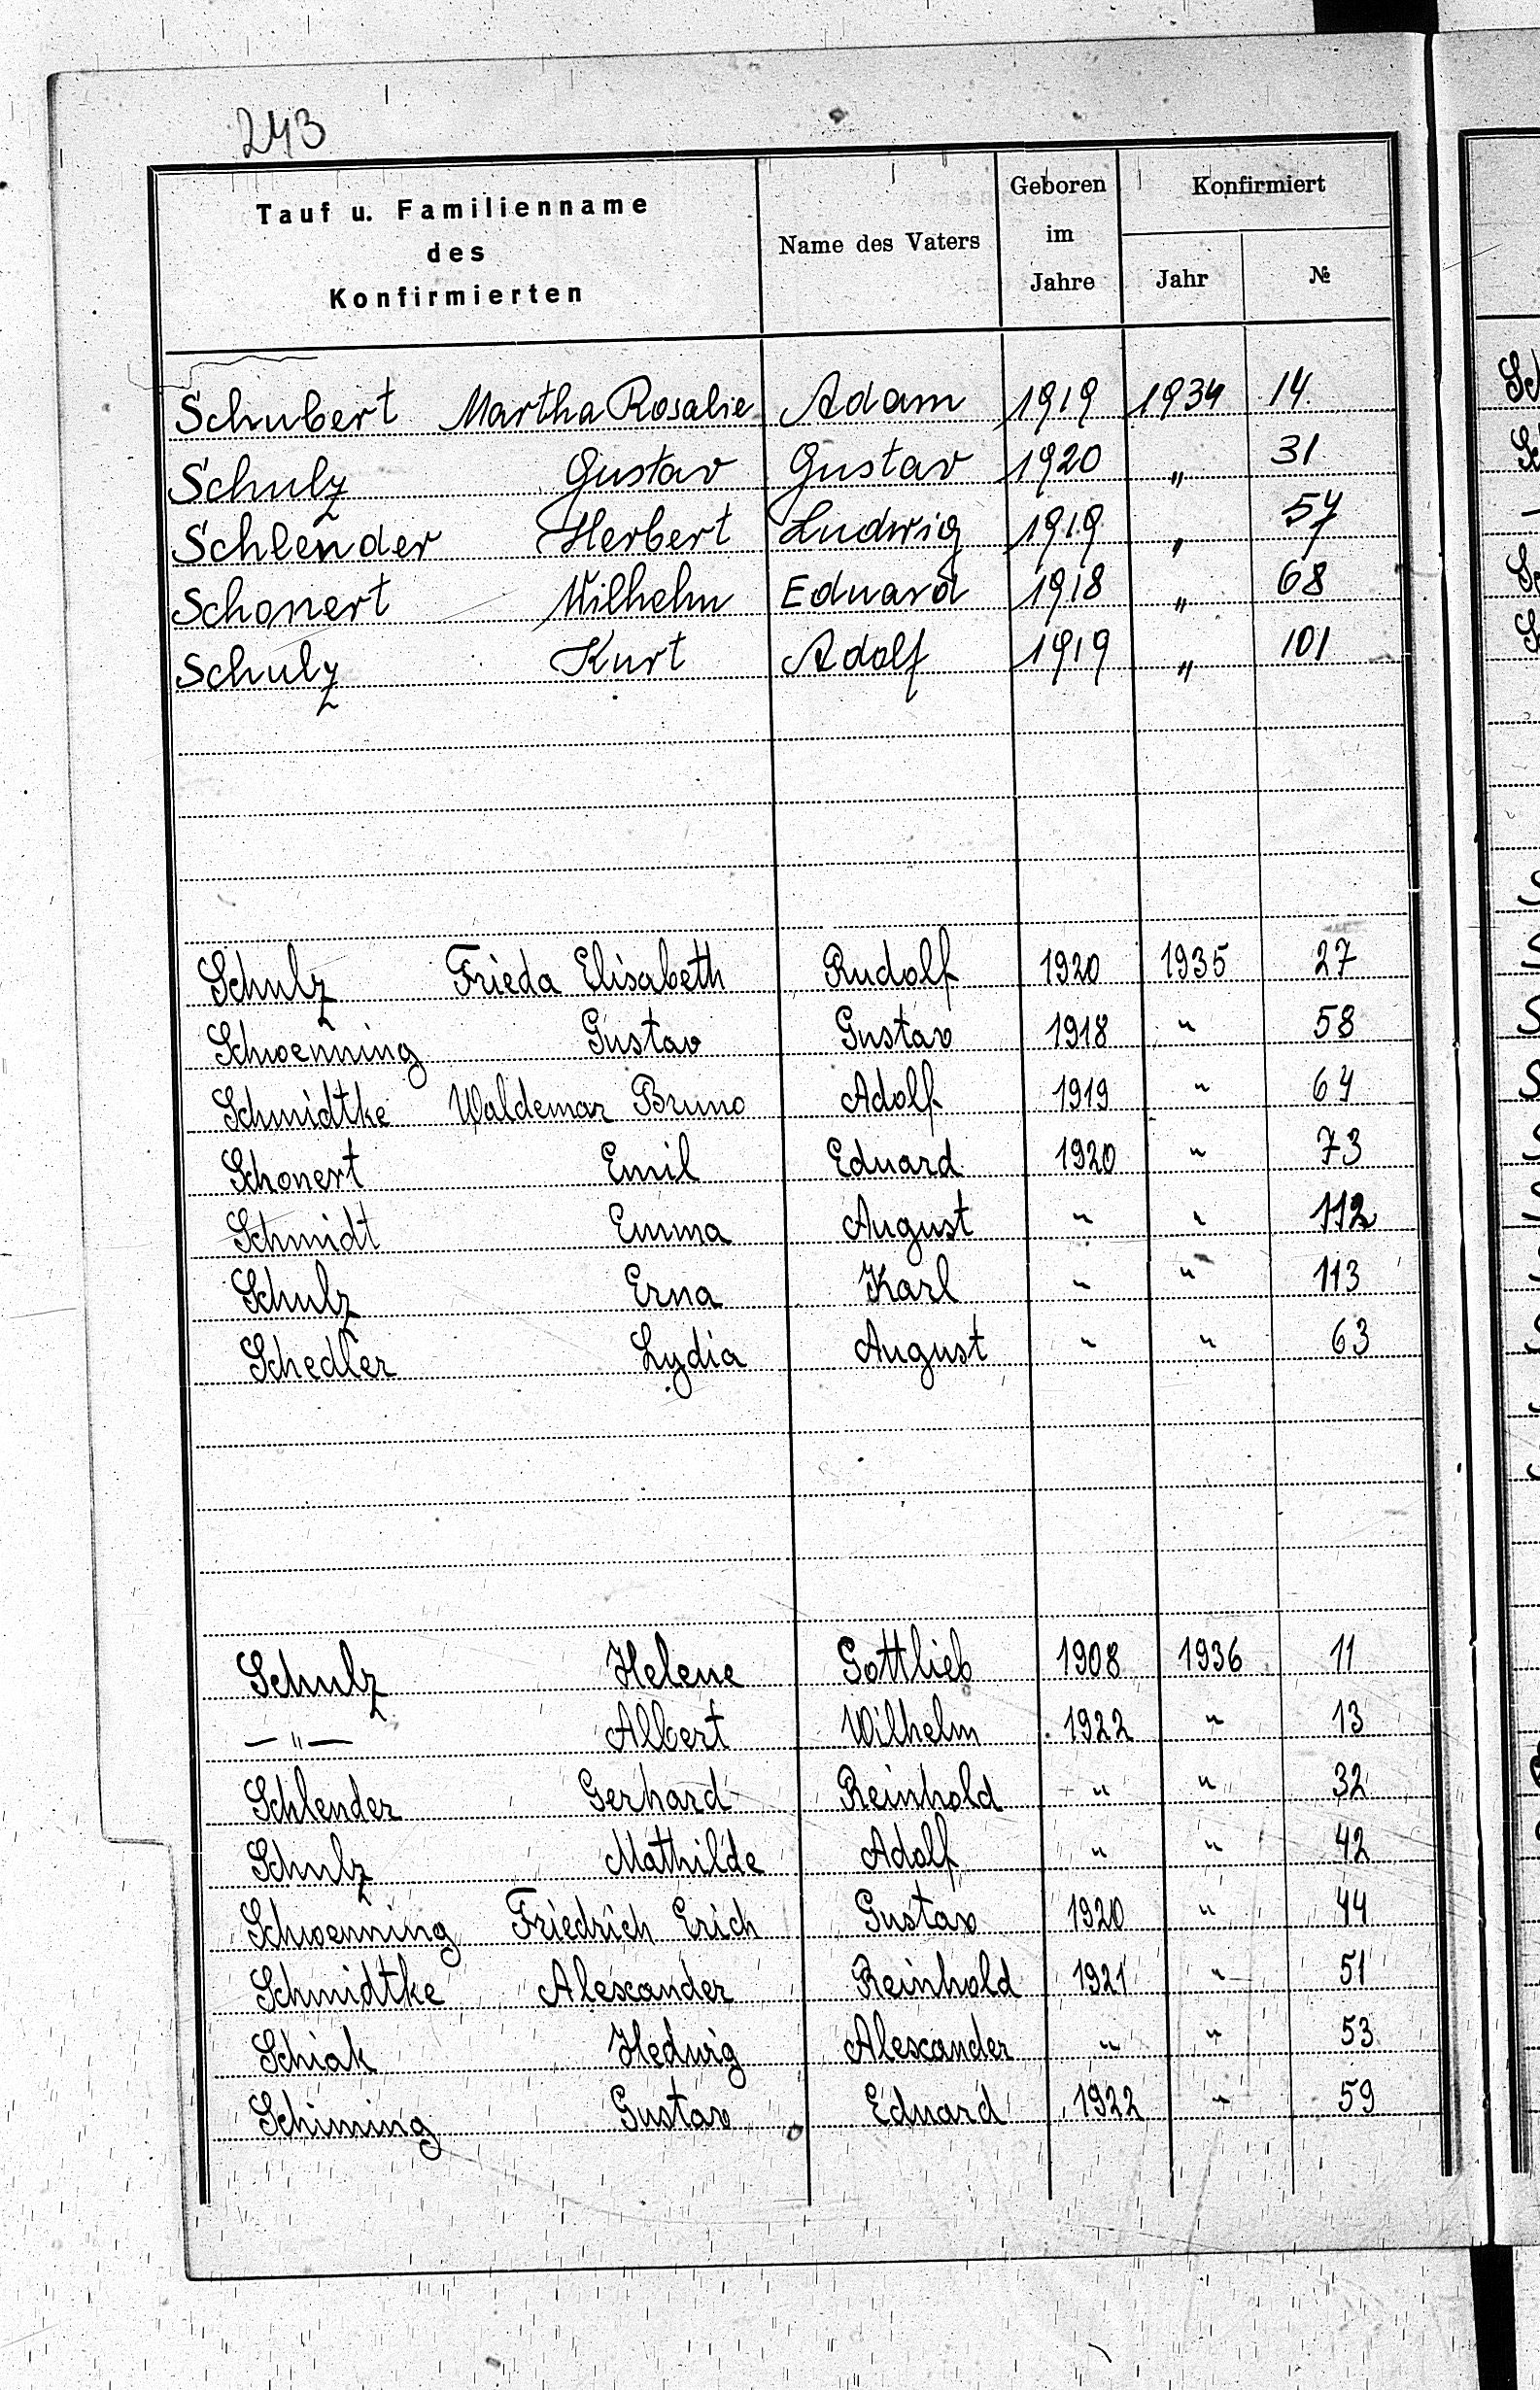 243
Tauf u. Familienname des Konfirmierten | Name des Vaters | Geboren im Jahre | Konfirmiert Jahr | №
Schubert Martha Rosalie Adam 1919 1934 14
Schulz Gustav Gustav 1920 " 31
Schlender Herbert Ludwig 1919 " 57
Schonert Wilhelm Eduard 1918 " 68
Schulz Kurt Adolf 1919 " 101
Schulz Frieda Elisabeth Rudolf 1920 1935 27
Schwenning Gustav Gustav 1918 " 58
Schmidtke Waldemar Bruno Adolf 1919 " 64
Schonert Emil Eduard 1920 " 73
Schmidt Emma August " " 112
Schulz Erna Karl " " 113
Schedler Lydia August " " 63
Schulz Helene Gottlieb 1908 1936 11
— " — Albert Wilhelm 1922 " 13
Schlender Gerhard Reinhold " " 32
Schulz Mathilde Adolf " " 42
Schwenning Friedrich Erich Gustav 1920 " 44
Schmidtke Alexander Reinhold 1921 " 51
Schiak Hedwig Alexander " " 53
Schiming Gustav Eduard 1922 " 59